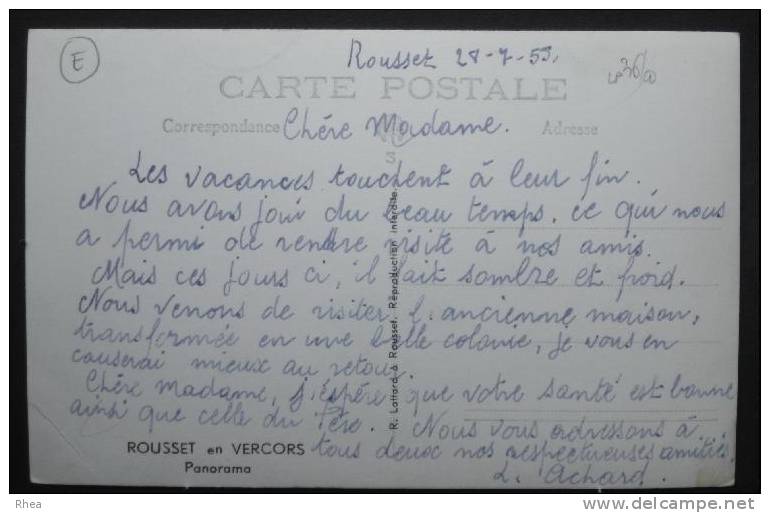 E
Rousset 28-7-53.
CARTE POSTALE
Correspondance Adresse
Chére Madame.
Les vacances touchent à leur fin.
Nous avons joui du beau temps. ce qui nous
a permi de rendre visite à nos amis.
Mais ces jours ci, il fait sombre et froid.
Nous venons de visiter l'ancienne maison,
transformée en une belle colonie, je vous en
causerai mieux au retour.
Chère Madame, j'espère que votre santé est bonne
ainsi que celle du Père. Nous vous adressons à
tous deux nos respectueuses amitiés.
L. Achard.
ROUSSET en VERCORS
Panorama
R. Lattard à Rousset. Reproduction interdite.
Rhea
http://www.delcampe.net